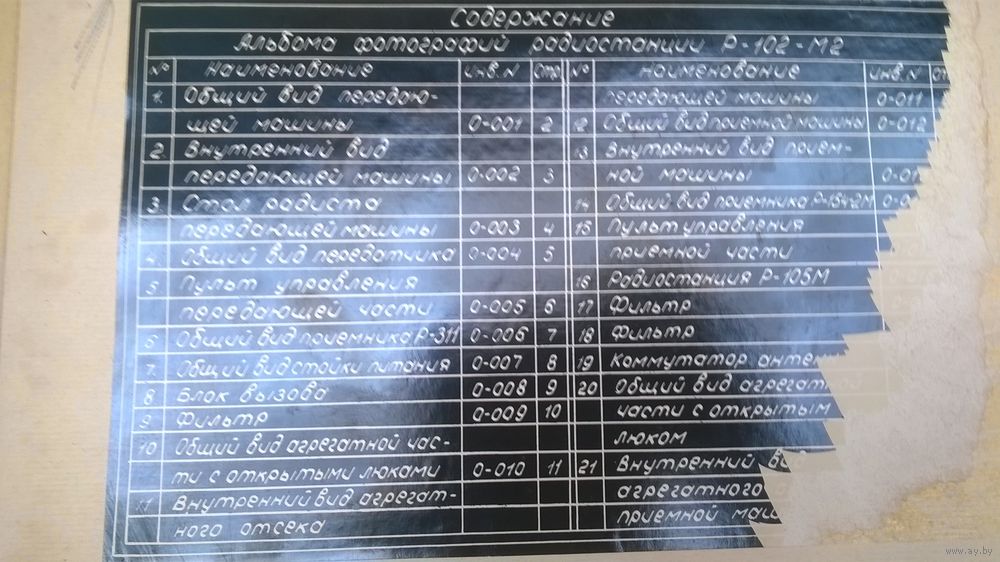 Содержание
Альбома фотографий радиостанции Р-102-М2
№ Наименование инв.N Стр.
1. Общий вид передаю-
щей машины 0-001 2
2 Внутренний вид
передающей машины 0-002 3
3 Стол радиста
передающей машины 0-003 4
4. Общий вид передатчика 0-004 5
5 Пульт управления
передающей части 0-005 6
6 Общий вид приемника Р-311 0-006 7
7. Общий вид стойки питания 0-007 8
8 Блок вызова 0-008 9
9 Фильтр 0-009 10
10 Общий вид агрегатной час-
ти с открытыми люками 0-010 11
11 Внутренний вид агрегат-
ного отсека
№ Наименование инв.N
передающей машины 0-011
12 Общий вид приемной машины 0-012
13 Внутренний вид прием-
ной машины
14 Общий вид приемника
15 Пульт управления
приемной части
16 Радиостанция Р-105М
17 Фильтр
18 Фильтр
19 Коммутатор
20 Общий вид
части с открытым
люком
21 Внутренний
агрегатного
приемной
www.ay.by